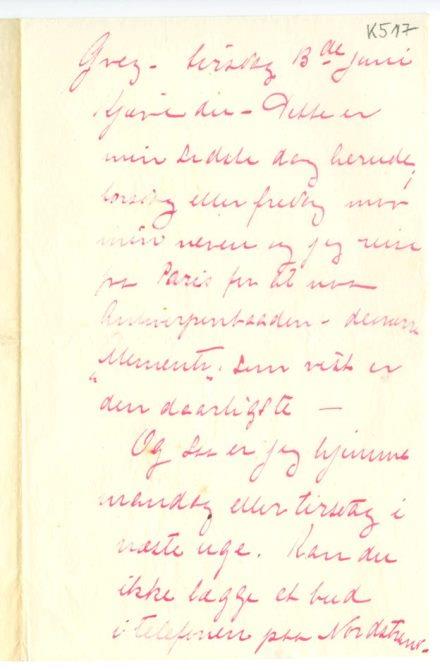 K517
Grez - tirsdag 13de juni
Kjære du - Dette er
min sidste dag herude,
torsdag eller fredag maa
min neven og jeg reise
fra Paris for at naa
Antwerpenbaaden - desværre
"Memento". Som vist er
den daarligste —
Og saa er jeg hjemme
mandag eller tirsdag i
næste uge. Kan du
ikke lægge et bud
i telefonen paa Nordstrand-